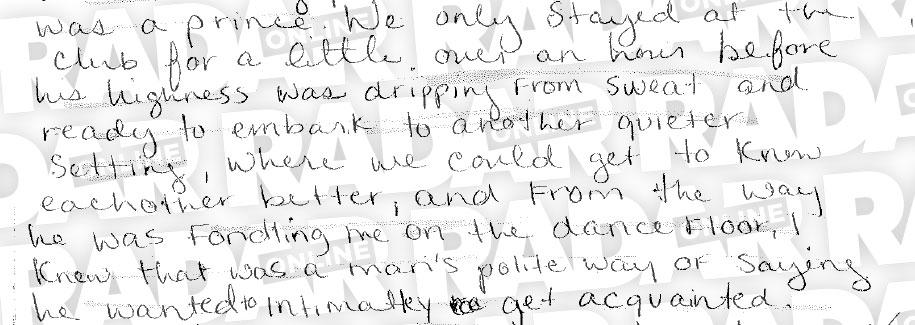 was a prince. We only stayed at the
club for a little over an hour before
his highness was dripping from sweat and
ready to embark to another quieter
setting, where we could get to know
eachother better, and from the way
he was fondling me on the dance floor, I
knew that was a man's polite way of saying
he wanted to intimatley get acquainted.